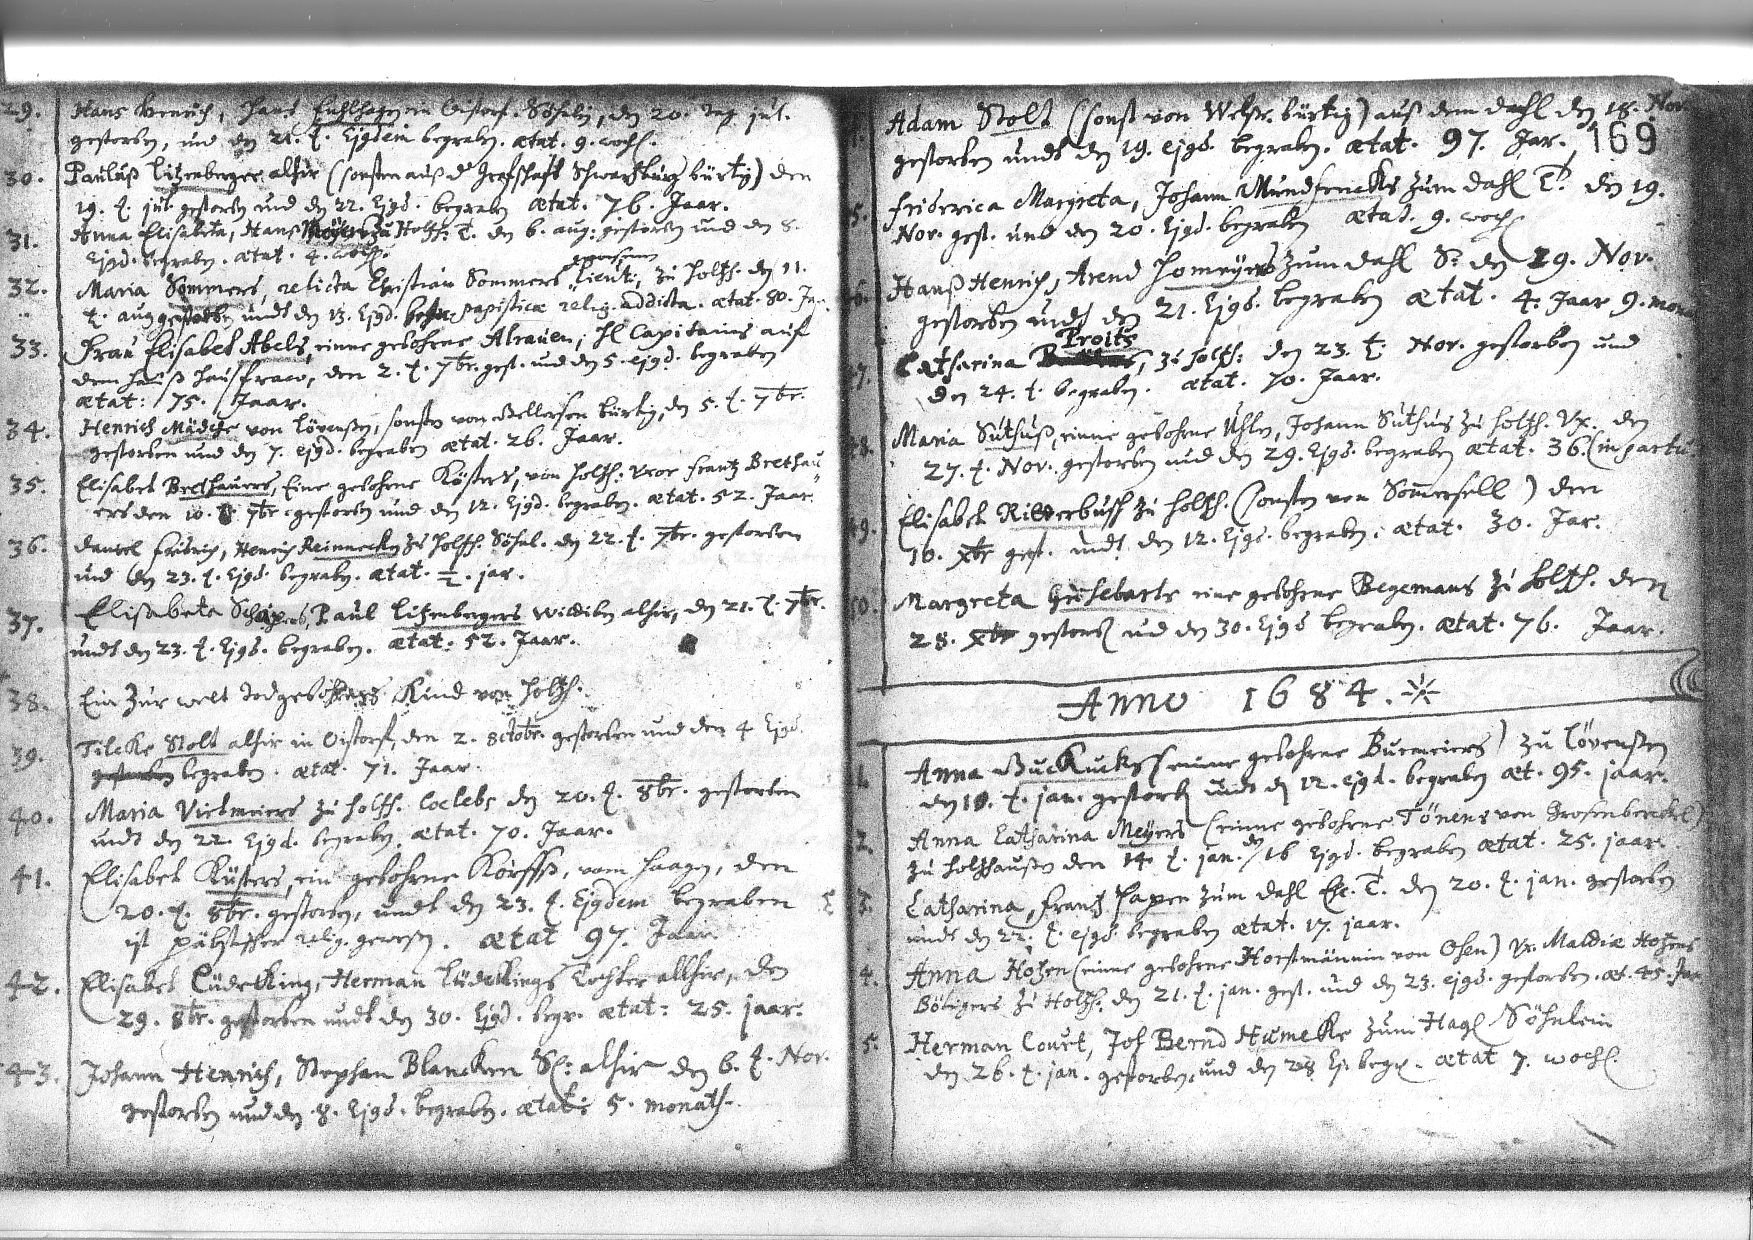 29. Hans Henrich, Hans Fuhlhagen in Oistorf. Söhnl., den 20. Jul.
gestorben, und den 21. t. Ejusdem begraben. ætat. 9. woch.
30. Pauluß Litzenberger alhir (sonsten auß dr Grafschaft Schwartzburg bürtig) den
19. t. jul. gestorben und den 22. Ejgd. begraben ætat. 76. Jaar.
31. Anna Elisabeta, Hanß Meyers zu Holtzh. T. den 6. aug. gestorben und den 8.
Ejgd. begraben. ætat. 4. woch.
32. Maria Sommers, relicta Christian Sommers Lieut: zu Holtzh. den 11.
t. aug gestorben undt den 13. Ejgd. begr. papisticæ relig. addicta. ætat. 80. Jar.
33. Frau Elisabet Abels, einne gebohrne Alrauen, Capitains auf
dem Hauß Hausfraw, den 2. t. 7br. gest. und den 5. ejgd. begraben
ætat: 75. Jaar.
34. Henrich Mädche von Lövensen, sonsten von Bellersen bürtig, den 5. t. 7br.
gestorben und den 7. ejgd. begraben ætat. 26. Jaar.
35. Elisabet Brethauers, Eine gebohrne Küsters, von Holtzh. Uxor Frantz Brethau
ers den 10. t. 7br. gestorben und den 12. Ejgd. begraben. ætat. 52. Jaar.
36. Daniel Fridrich, Henrich Reinnecken zu Holtzh. Söhnl. den 22. t. 7br. gestorben
und den 23. t. Ejgd. begraben. ætat. ½. jar.
37. Elisabeta Schäpers, Paul Litzenbergers alhir, den 21. t. 7br.
undt den 23. t. Ejgd. begraben. ætat: 52. Jaar.
38. Ein zur welt todgebohrnes Kind von Holtzh.
39. Tilcke Stolt alhir in Oistorf, den 2. 8tobr. gestorben und den 4 Ejgd.
gestorben begraben. ætat. 71. Jaar.
40. Maria Vietmeiers zu Holtzh. Coelebs den 20. t. 8br. gestorben
undt den 22. Ejgd. begraben. ætat. 70. Jaar.
41. Elisabet Küsters, ein gebohrne Körffs, vom Haagen, den
20. t. 8br. gestorben, undt den 23. t. Ejgdem begraben
ist päbstischer relig. gewesen. ætat 97. Jaar
42. Elisabet Lüdeking, Herman Lüdekings Tochter allhir, den
29. 8br. gestorben undt den 30. Ejgd. begr. ætat: 25. jaar.
43. Johann Henrich, Stephan Blancken S: alhir den 6. t. Nov.
gestorben und den 8. Ejgd. begraben. ætat: 5. monath.
169
Adam Stolt (sonst von bürtig) auß dem dahl den 18. Nov.
gestorben undt den 19. ejgd. begraben. ætat. 97. Jar.
5. Friderica Margreta, Johann Mundhencks zum dahl T. den 19.
Nov. gest. und den 20. Ejgd. begraben ætat. 9. woch.
6. Hanß Henrich, Arend Homeyers zum dahl S. den 19. Nov.
gestorben undt den 21. Ejgd. begraben ætat. 4. Jaar 9. mon
47. Catharina Proits, zu Holtzh: den 23. t. Nov. gestorben und
den 24. t. begraben. ætat. 70. Jaar.
48. Maria Suthuß, einne gebohrne Uhlen, Johann Suthus zu Holtzh. Ux. den
27. t. Nov. gestorben und den 29. Ejgd. begraben ætat. 36. (in partu
49. Elisabet Ritterbusch zu Holtzh. (sonsten von Sommersell) den
10. Xbr gest. undt den 12. Ejgd. begraben. ætat. 30. Jar.
50. Margreta Gieselbarts eine gebohrne Begemans zu Holtzh. den
28. Xbr gestorb. und den 30. Ejgd begraben. ætat. 76. Jaar.
Anno 1684.
1. Anna Buckucks (einne gebohrne Burmeiers) zu Lövensen
den 10. t. jan. gestorb. undt den 12. ejgd. begraben æt. 95. jaar.
2. Anna Catharina Meyers (einne gebohrne Tönens von Grosenberckel)
zu Holtzhausen den 14. t. jan. den 16 Ejgd. begraben ætat. 25. jaar.
3. Catharina, Frantz Papen zum dahl T. den 20. t. jan. gestorben
undt den 22. t. ejgd. begraben ætat. 17. jaar.
4. Anna Hotzen (einne gebohrne Horstmännin von Osen) Ux. Matdiæ Hotzens
Böttgers zu Holtzh. den 21. t. jan. gest. und den 23. ejgd. gestorben. æt. 45. Jar
5. Herman Court, Joh Bernd Humeke zum Hagen Söhnlein
den 26. t. jan. gestorben, und den 28 Ej. begr. ætat 7. woch.